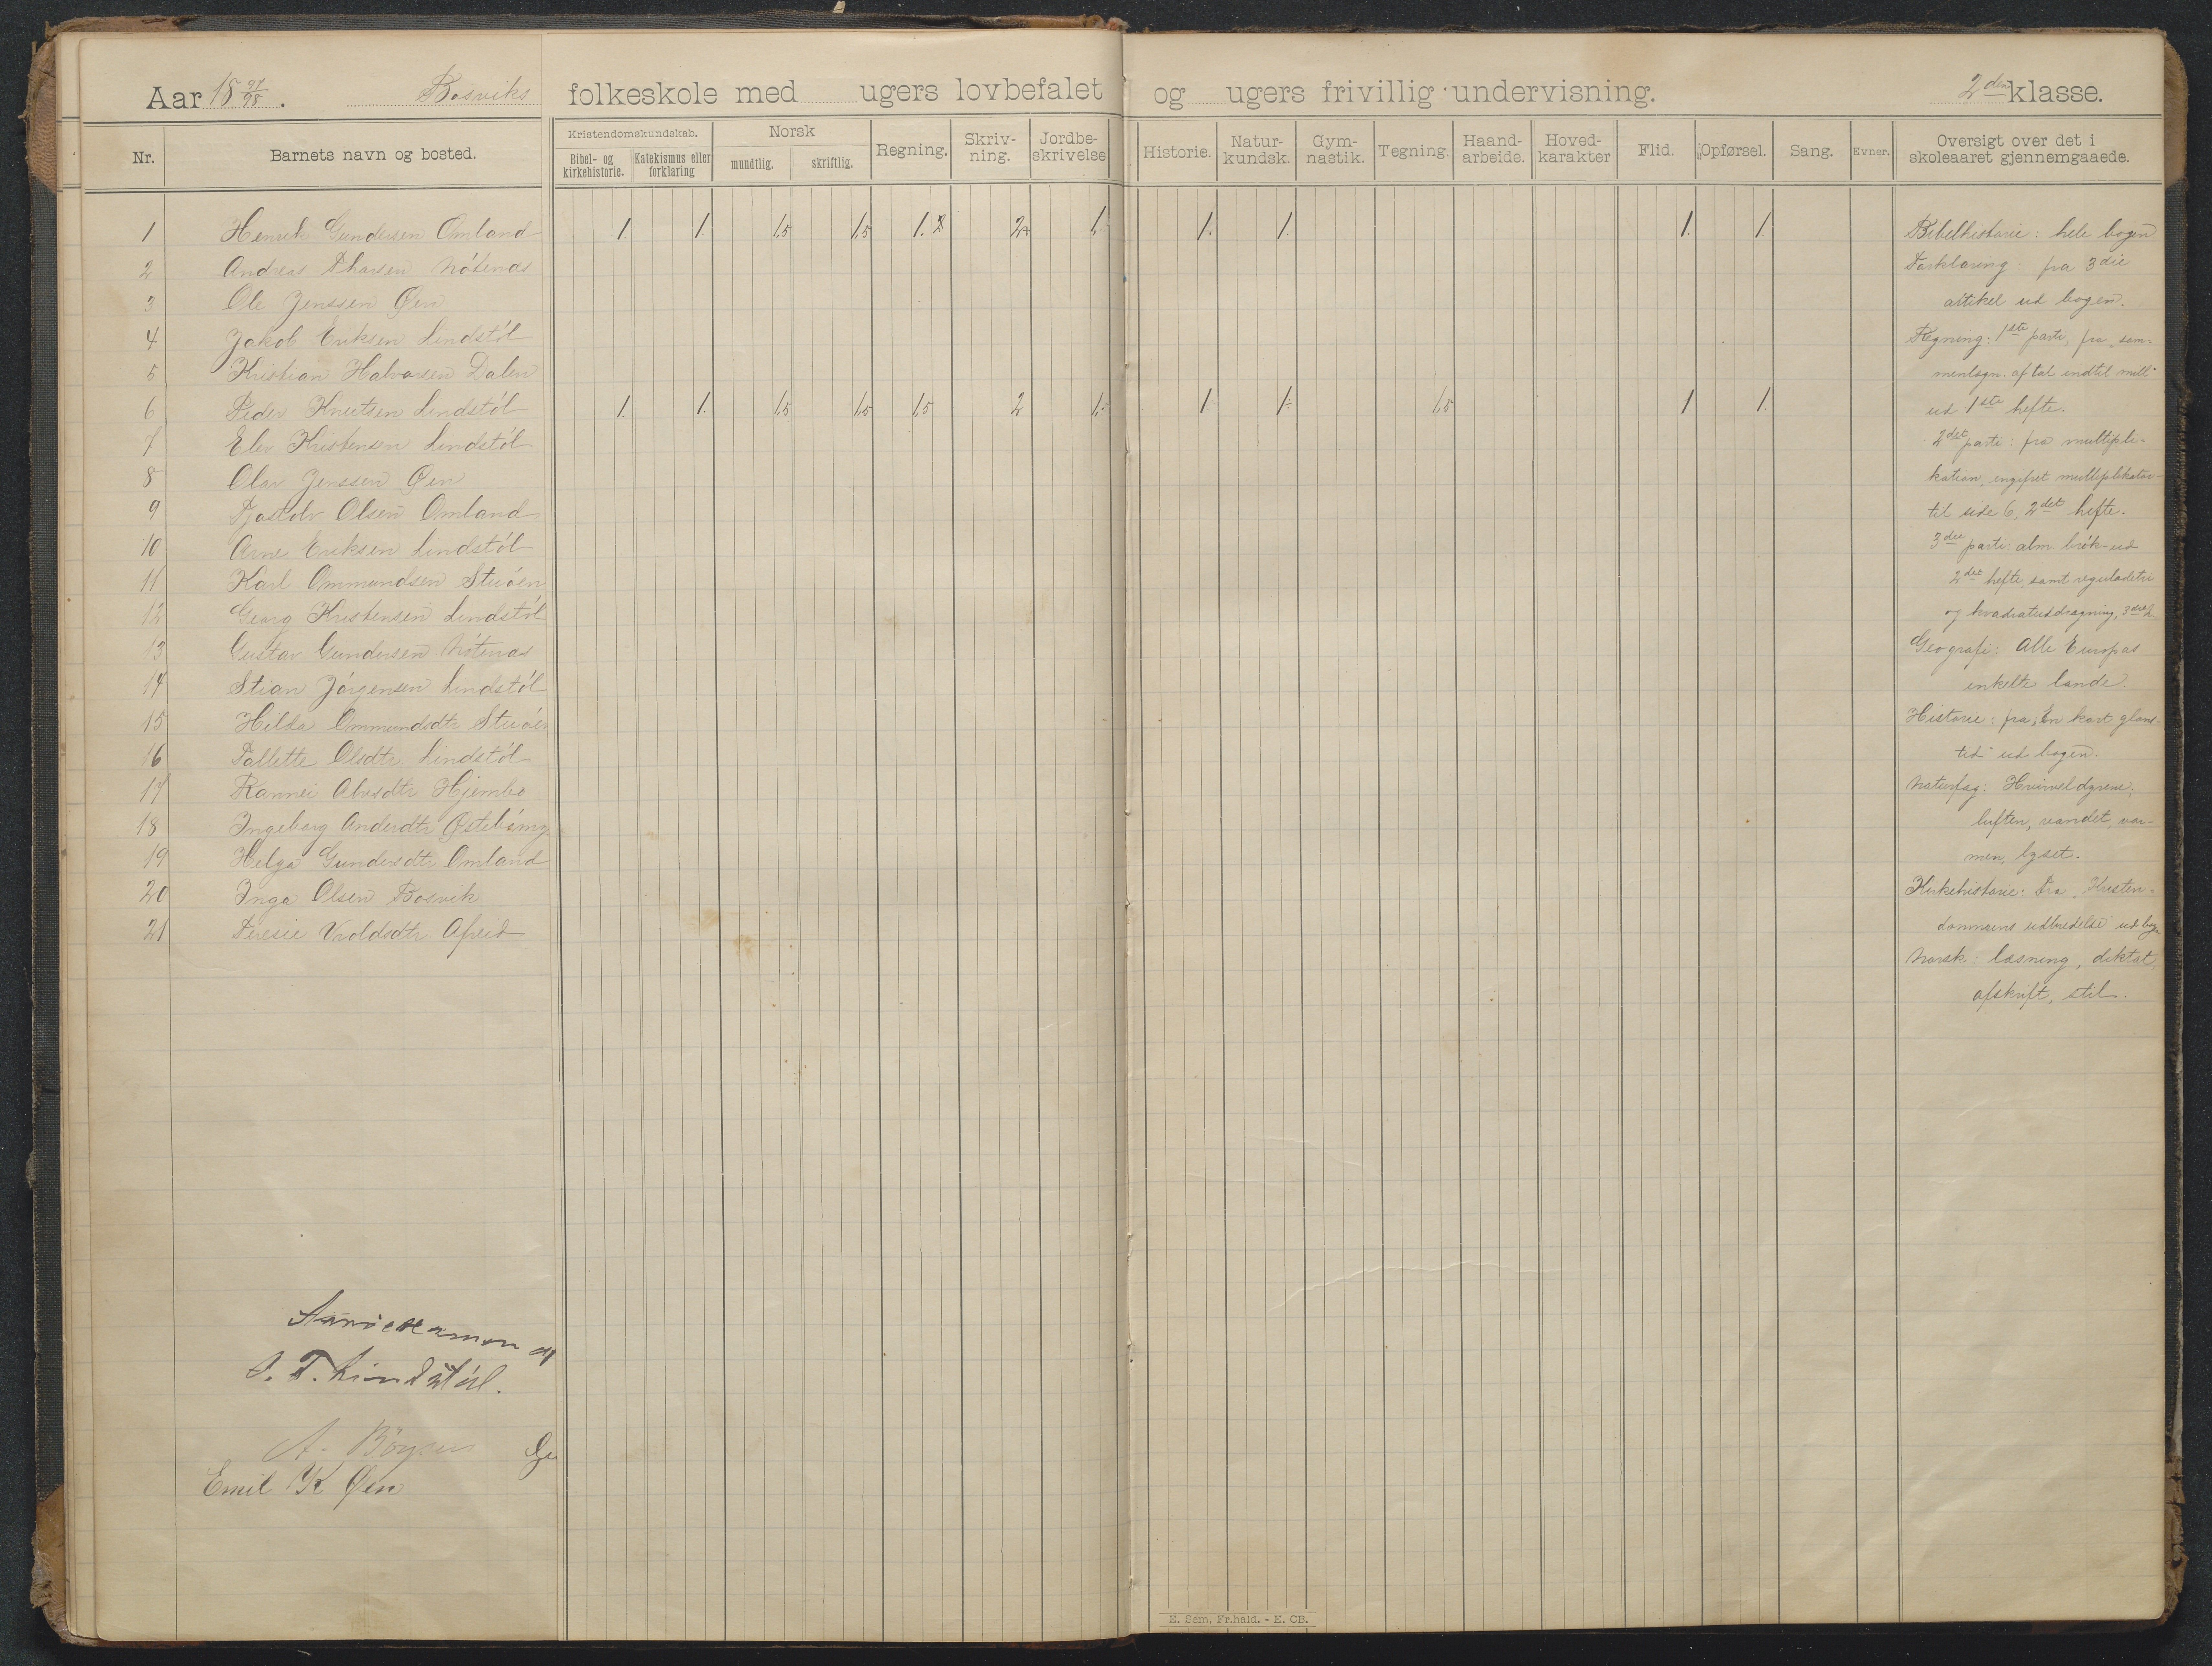 Aar 18 97/98. Bosviks folkeskole med ugers lovbefalet og ugers frivillig undervisning. 2den klasse.
Nr. Barnets navn og bosted. Kristendomskundskab. Bibel- og kirkehistorie. Katekismus eller forklaring Norsk mundtlig. skriftlig. Regning. Skriv-ning. Jordbe-skrivelse Historie. Natur-kundsk. Gym-nastik. Tegning. Haand-arbeide. Hoved-karakter Flid. Opførsel. Sang. Evner. Oversigt over det i skoleaaret gjennemgaaede.
1 Henrik Gundersen Omland 1. 1. 1,5 1,5 1. 2 1. 1. 1. 1. 1.
2 Andreas Nótenæs
3 Ole Jenssen Øen
4 Jakob Eriksen Lindstól
5 Kristian Halvorsen Dalen
6 Peder Knutsen Lindstól 1. 1. 1,5 1,5 1,5 2 1. 1. 1. 1,5 1 1.
7 Elev Kristensen Lindstól
8 Olav Jenssen Øen
9 Tjostolv Olsen Omland
10 Arne Eriksen Lindstól
11 Karl Ommundsen Stuóen
12 Georg Kristensen Lindstól
13 Gustav Gundersen Nótenæs
14 Stian Jórgensen Lindstól
15 Hilda Ommundsdtr Stuóen
16 Tallette Olsdtr. Lindstól
17 Rannei Alvsdtr Hjembo
18 Ingeborg Andersdtr
19 Helga Gundersdtr Omland
20 Inga Olsen Bosvik
21 Teresie Afreid
Bibelhistorie: hele bogen
Forklaring: fra 3die
artikel ud bogen.
Regning: 1ste parti, fra „sam-
menlægn. af tal indtil mill"
ud 1ste hefte.
2det parti: fra multipli-
kation, engifret multiplikator
til side 6, 2det hefte.
3die parti: alm. brók ud
2det hefte, samt reguladetri
og kvadratuddragning, 3die h.
Geografi: Alle Europas
enkelte lande
Historie: fra „En kort glans-
tid" ud bogen.
Naturfag: Hvirveldyrene,
luften, vandet, var-
men, lyset.
Kirkehistorie: fra „Kristen-
dommens udbredelse" ud bog.
Norsk: læsning, diktat,
afskrift, stil.
A. Bóysen
Emil K Øen
E. Sem, Fr.hald. - E. CB.